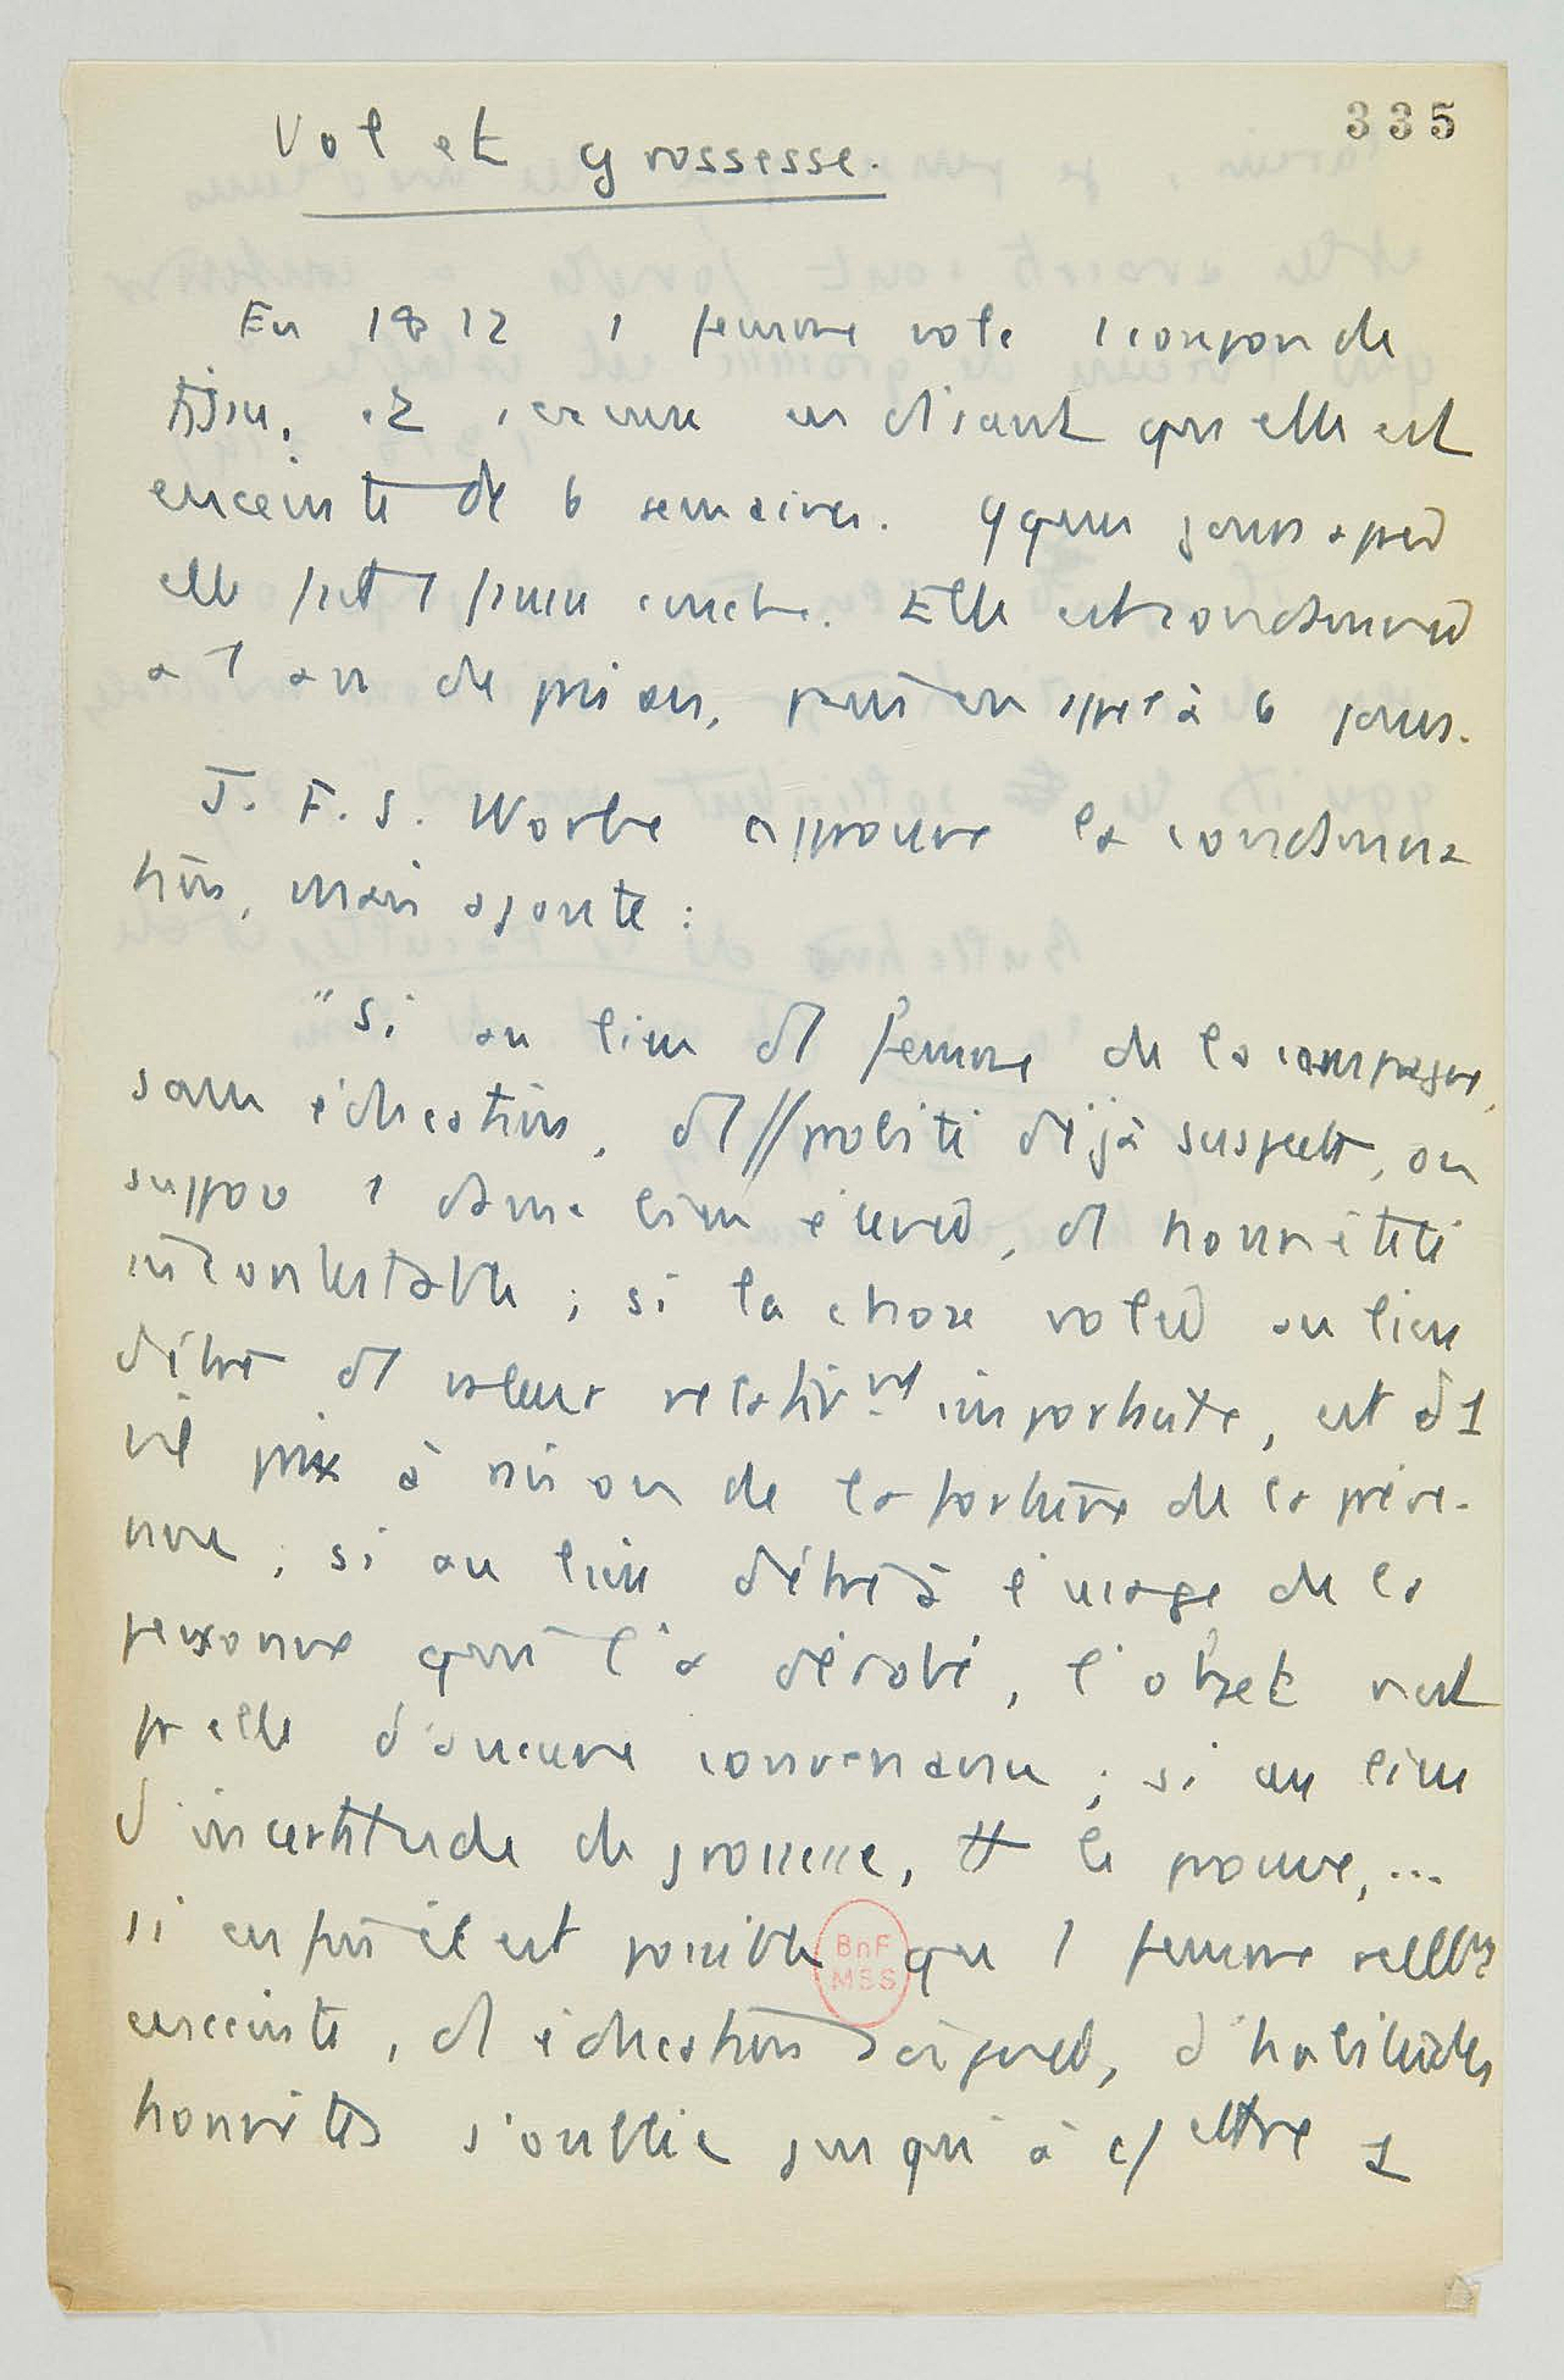 335
Vol et grossesse.
En 1812 1 femme vole 1 coupon de
tissu, et s'excuse en disant qu'elle est
enceinte de 6 semaines. qques jours après
elle fait 1 fausse couche. Elle est condamnée
à 1 an de prison, puis en appel à 6 jours.
J. F. S. Worbe approuve la condamna
tion, mais ajoute :
"Si au lieu d'1 femme de la campagne,
sans éducation, d'1 // probité déjà suspecte, on
suppose 1 dame bien élevée, d'1 honnêteté
incontestable ; si la chose volée au lieu
d'être d'1 valeur relativt importante, est d'1
vil prix à raison de la fortune de la préve-
nue ; si au lieu d'être à l'usage de la
personne qui l'a dérobé, l'objet n'est
pr elle d'aucune convenance ; si au lieu
d'incertitude de grossesse, tt le prouve, ...
si enfin il est possible que 1 femme réellmt
enceinte, d'1 éducation soignée, d'habitudes
honnêtes s'oublie jusqu'à c/ettre 1
BnF
MSS